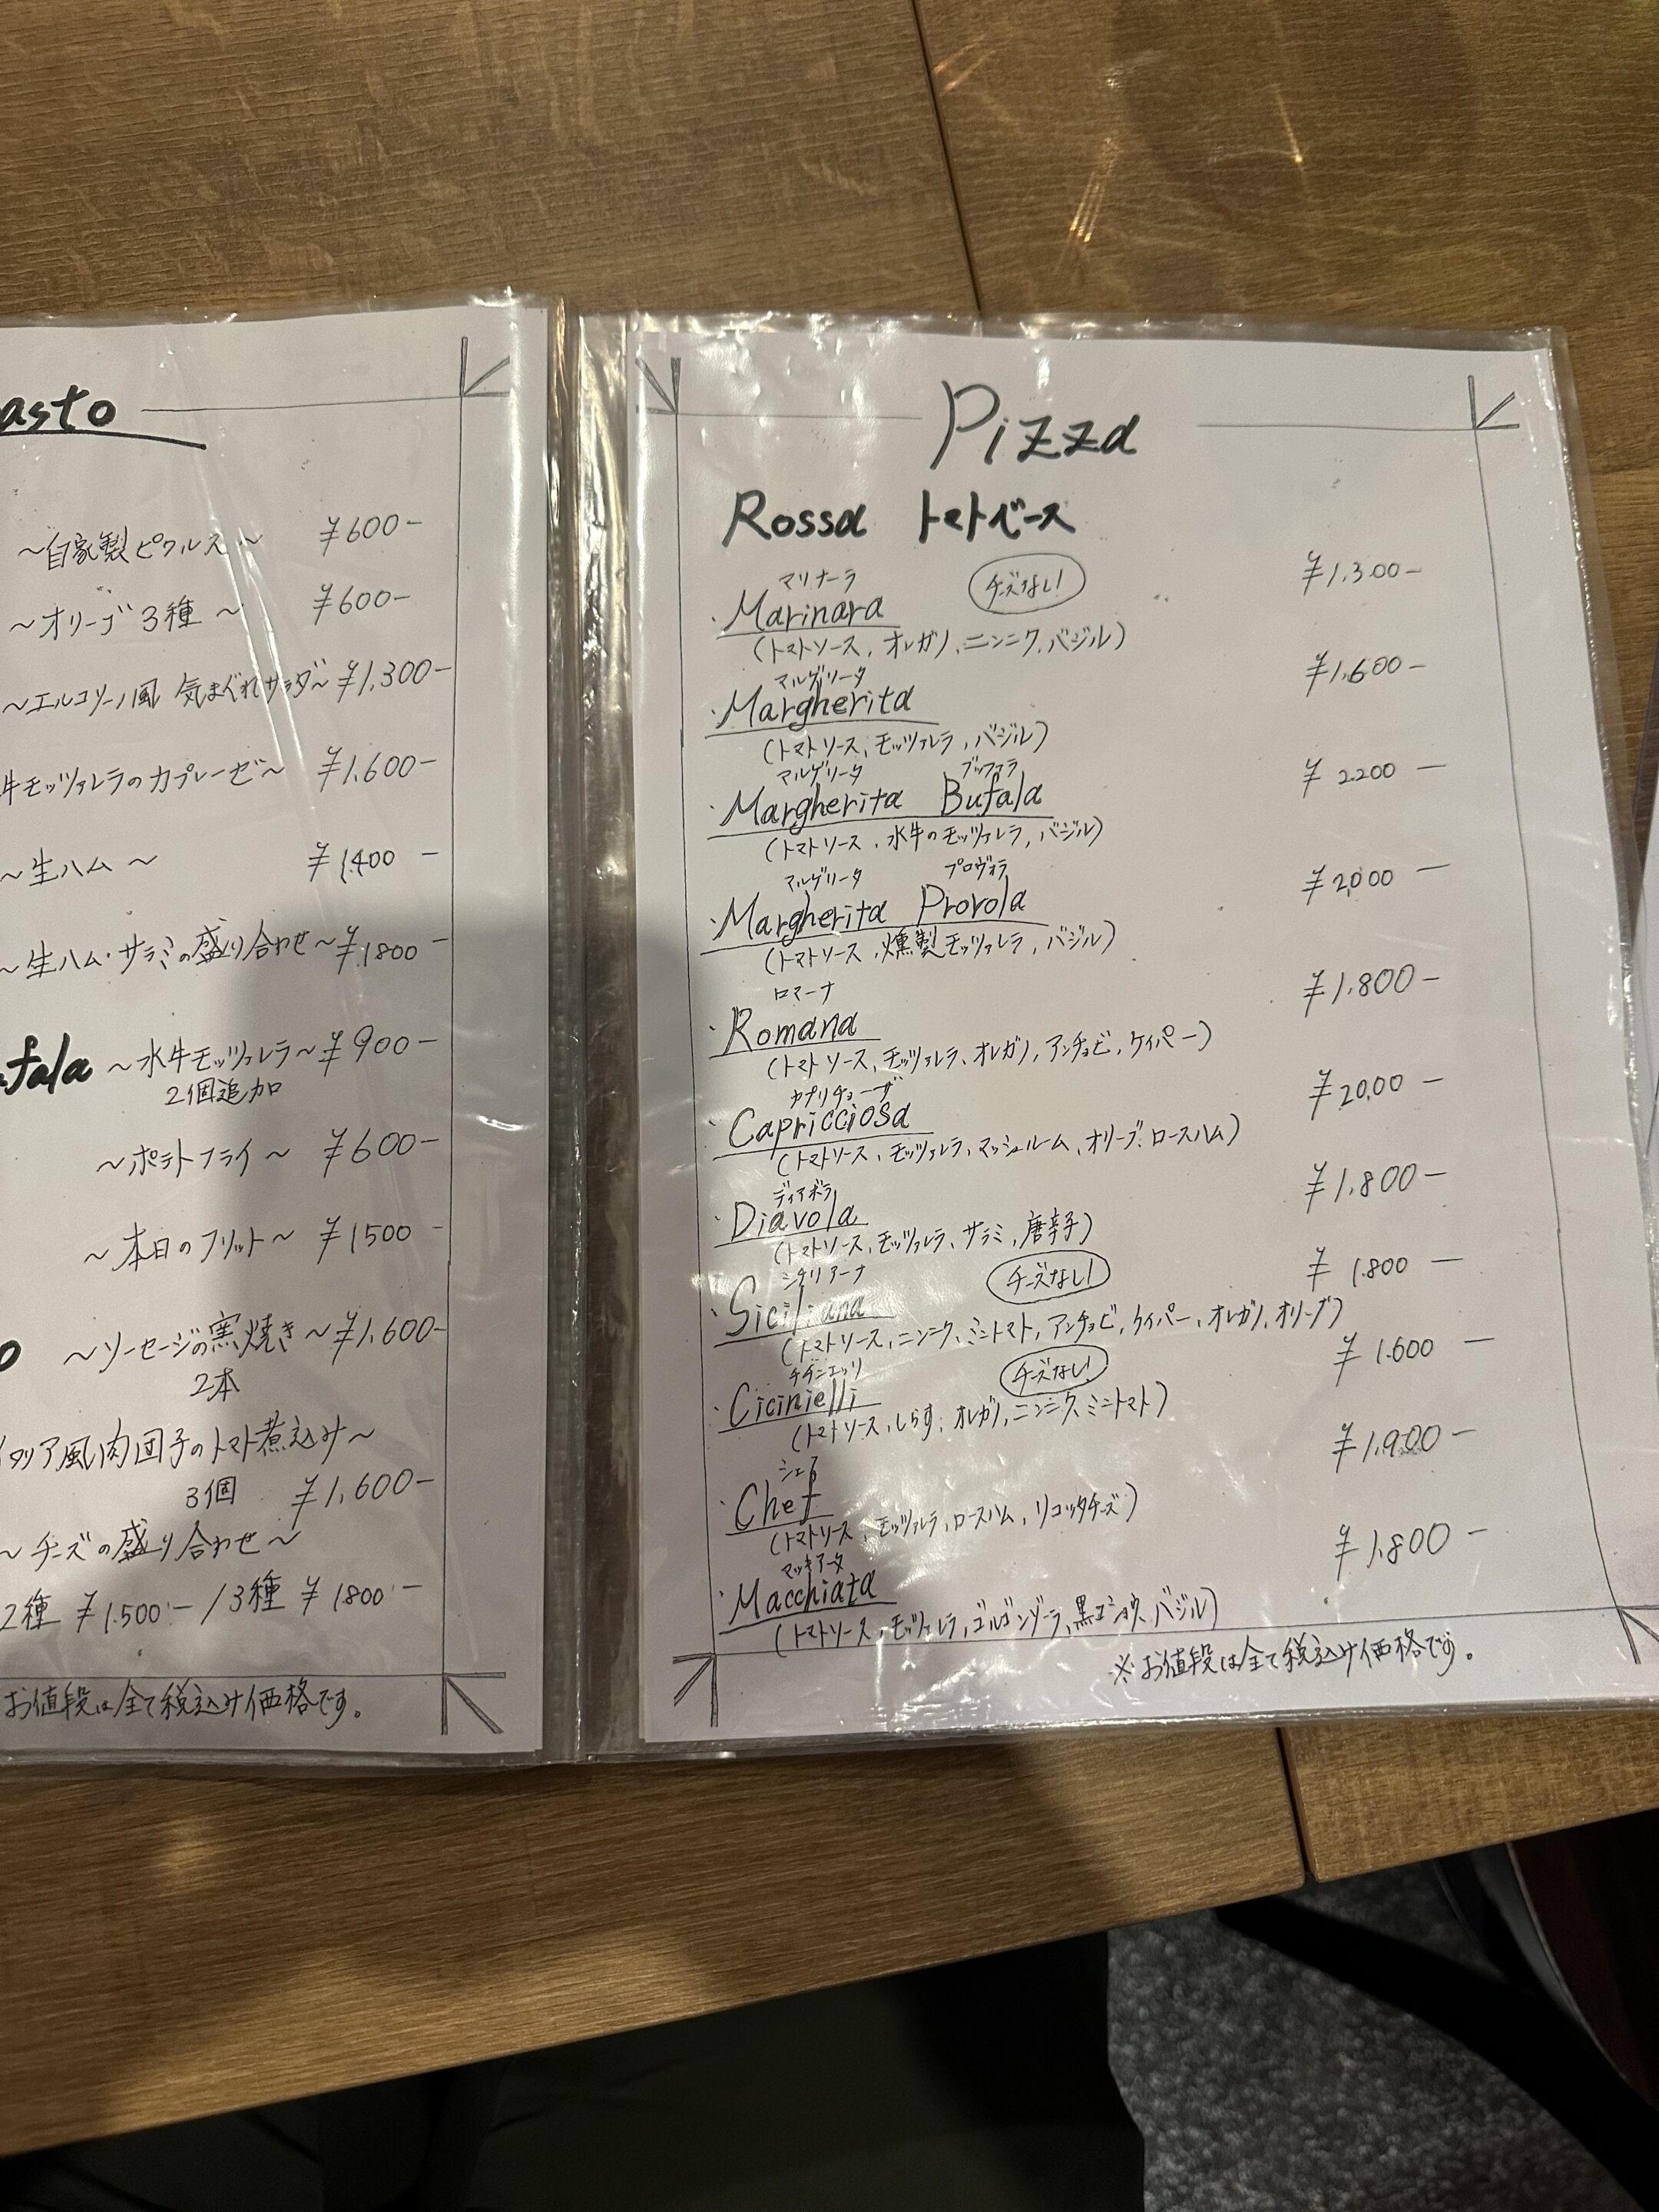 asto
～自家製ピクルス～ ¥600-
～オリーブ3種～ ¥600-
～エルコリーノ風 気まぐれサラダ～ ¥1,300-
牛モッツァレラのカプレーゼ～ ¥1,600-
～生ハム～ ¥1,400-
～生ハム・サラミの盛り合わせ～ ¥1800-
fala ～水牛モッツァレラ～ ¥900-
2個追加
～ポテトフライ～ ¥600-
～本日のフリット～ ¥1500-
o ～ソーセージの窯焼き～ ¥1,600-
2本
タリア風肉団子のトマト煮込み～
3個 ¥1,600-
～チーズの盛り合わせ～
2種 ¥1.500- /3種 ¥1800-
お値段は全て税込み価格です。
Pizza
Rossa トマトベース
マリナーラ
・Marinara チーズなし! ¥1,300-
(トマトソース、オレガノ、ニンニク、バジル)
マルゲリータ
・Margherita ¥1,600-
(トマトソース、モッツァレラ、バジル)
マルゲリータ ブッファラ
・Margherita Bufala ¥2200-
(トマトソース、水牛のモッツァレラ、バジル)
マルゲリータ プロヴォラ
・Margherita Provola ¥2,000-
(トマトソース、燻製モッツァレラ、バジル)
ロマーナ
・Romana ¥1,800-
(トマトソース、モッツァレラ、オレガノ、アンチョビ、ケイパー)
カプリチョーザ
・Capricciosa ¥2,000-
(トマトソース、モッツァレラ、マッシュルーム、オリーブ、ロースハム)
ディアボラ
・Diavola ¥1,800-
(トマトソース、モッツァレラ、サラミ、唐辛子)
シチリアーナ
・Siciliana チーズなし! ¥1.800-
(トマトソース、ニンニク、ミニトマト、アンチョビ、ケイパー、オレガノ、オリーブ)
チチニエッリ
・Cicinielli チーズなし! ¥1.600-
(トマトソース、しらす、オレガノ、ニンニク、ミニトマト)
シェフ
・Chef ¥1,900-
(トマトソース、モッツァレラ、ロースハム、リコッタチーズ)
マッキアータ
・Macchiata ¥1,800-
(トマトソース、モッツァレラ、ゴルゴンゾーラ、黒コショウ、バジル)
※お値段は全て税込み価格です。